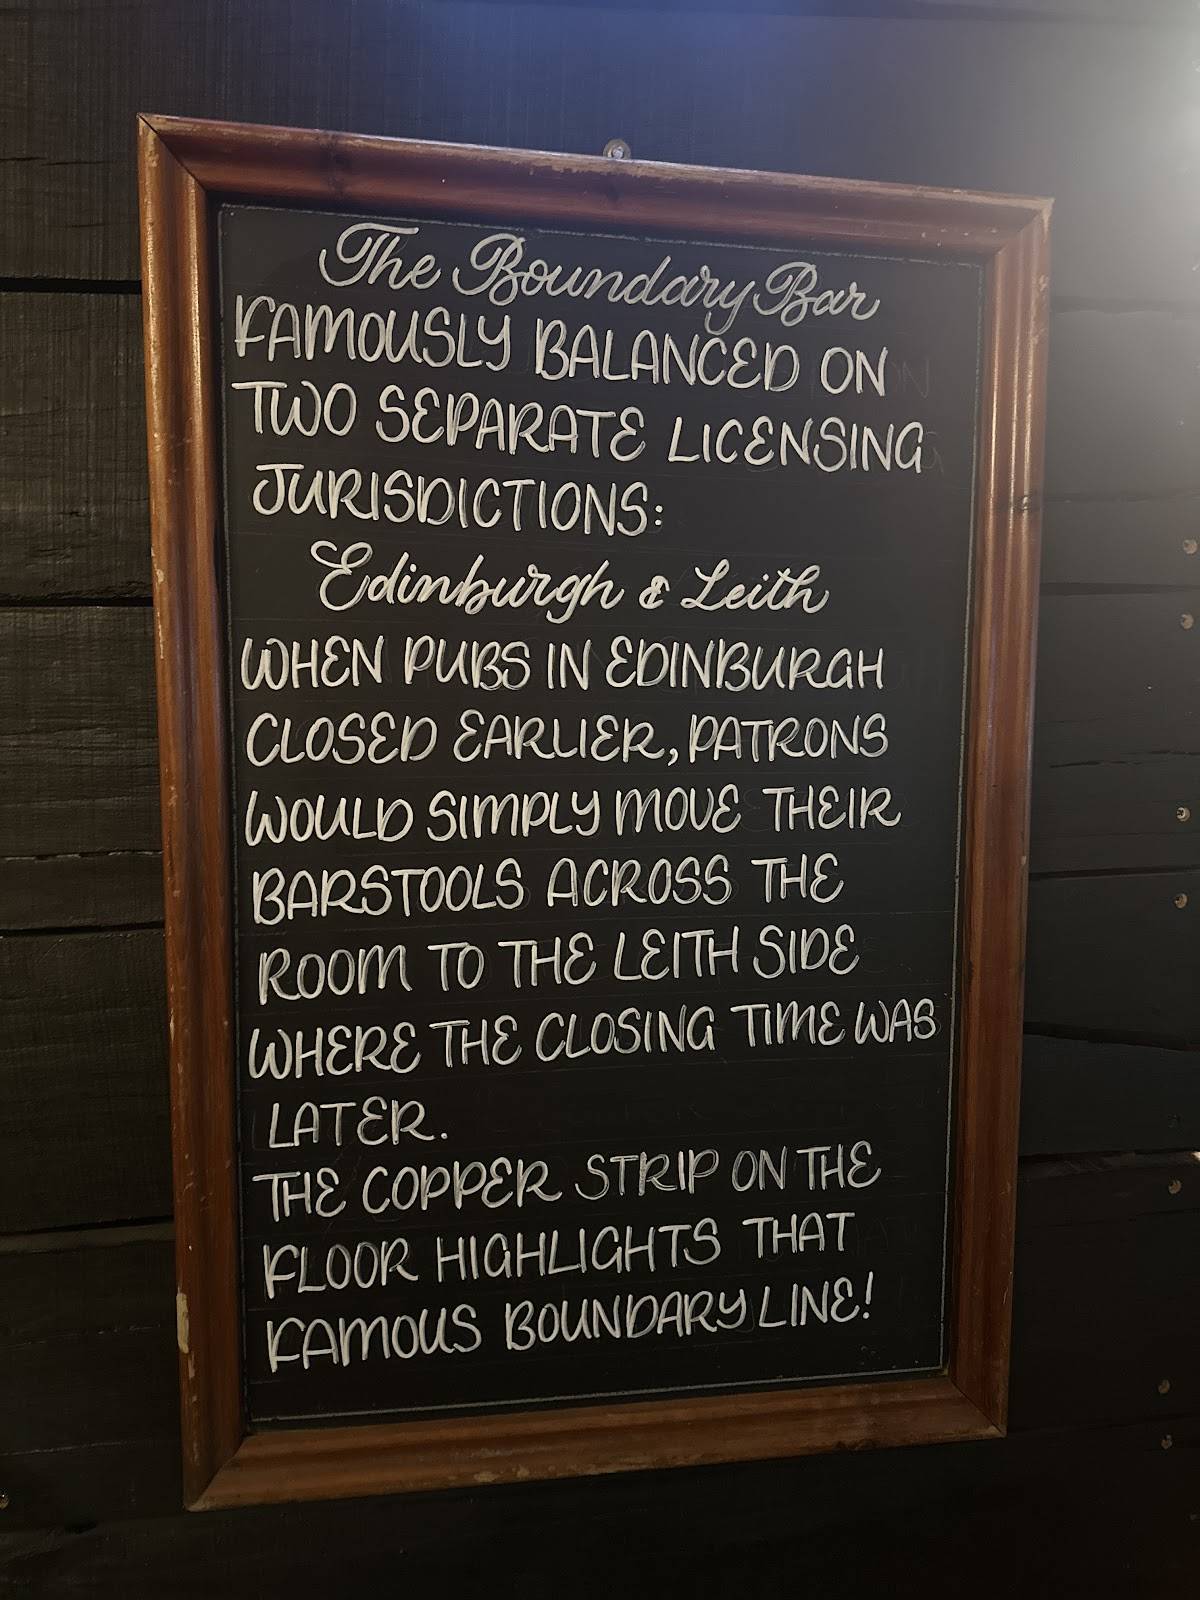 The Boundary Bar
FAMOUSLY BALANCED ON
TWO SEPARATE LICENSING
JURISDICTIONS:
Edinburgh & Leith
WHEN PUBS IN EDINBURGH
CLOSED EARLIER, PATRONS
WOULD SIMPLY MOVE THEIR
BARSTOOLS ACROSS THE
ROOM TO THE LEITH SIDE
WHERE THE CLOSING TIME WAS
LATER.
THE COPPER STRIP ON THE
FLOOR HIGHLIGHTS THAT
FAMOUS BOUNDARY LINE!